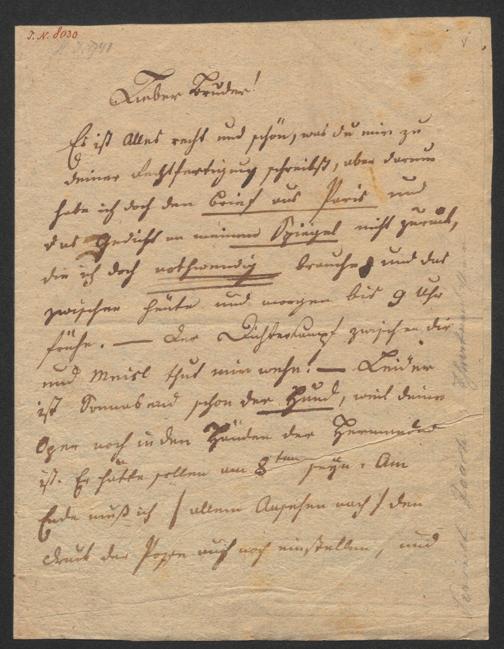 I.N. 8030
Lieber Bruder!
Es ist Alles recht und schön, was du mir zu
deiner Rechtfertigung schreibst, aber darum
habe ich doch den Brief aus Paris und
das Gedicht an meinen Spiegel nicht zurück,
die ich doch nothwendig brauche, und das
zwischen heute und morgen bis 9 Uhr
frühe. — Der Dichterkampf zwischen dir
und Meisl thut mir wehe! — Leider
ist Sonnabend schon der Hund, weil deine
Oper noch in den Händen der
ist. Es hätte sollen am 8ten seyn. Am
Ende muß ich / allem Ansehen nach / den
Druck der Posse auch noch einstellen, und